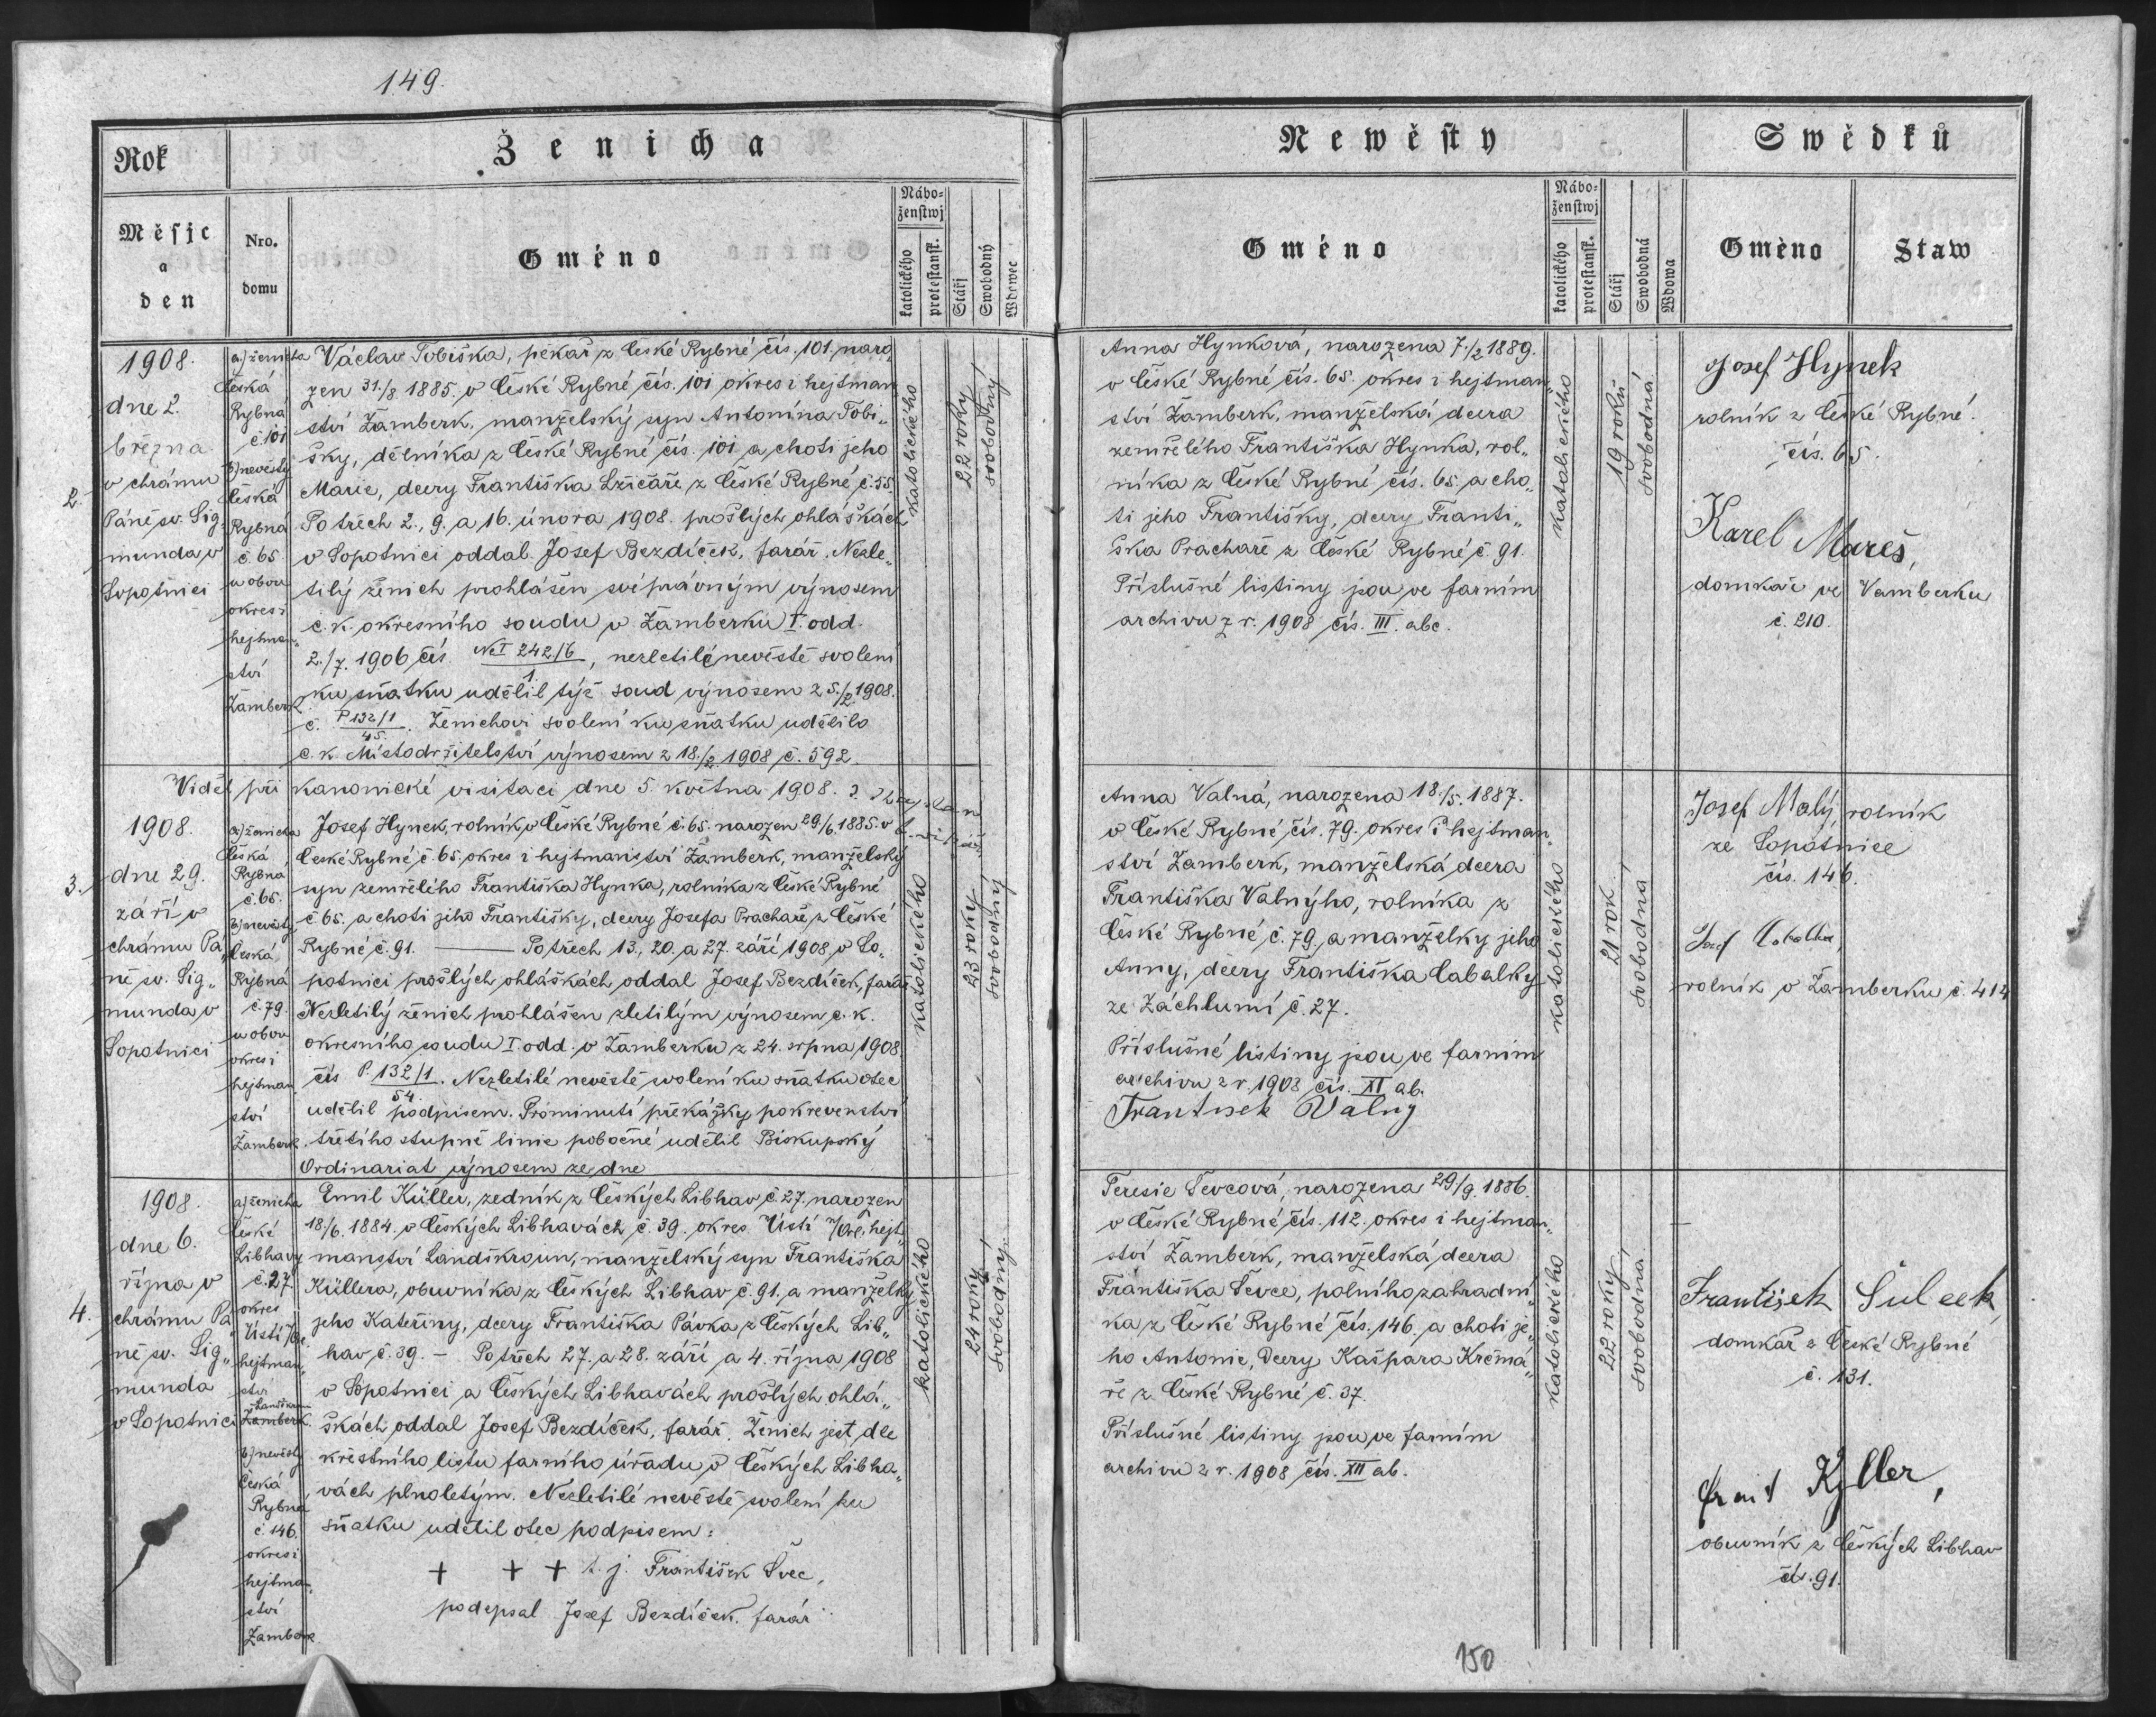 149.
Rok
Ženicha
Měsjc
a
den
Nro.
domu
Gméno
Nábo-
ženstwj
katolického
protestanst.
Stářj
Swobodný
Wdowec
2.
1908.
dne 2.
března
v chrámu
Páně sv. Sig„
munda v
Sopotnici
a.) ženicha
Česká
Rybná
č. 101
b) nevěsty
Česká
Rybná
č. 65
u obou
okres i
hejtman„
ství
Žamberk.
Václav Tobiška, pekař z České Rybné čís. 101. naro„
zen 31./8 1885. v České Rybné čís. 101 okres i hejtman„
ství Žamberk, manželský syn Antonína Tobi„
šky, dělníka z České Rybné čís. 101 a choti jeho
Marie, dcery Františka Lžičaře z České Rybné č. 55.
Po třech 2., 9. a 16. února 1908. prošlých ohláškách
v Sopotnici oddal Josef Bezdíček, farář. Nezle„
tilý ženich prohlášen svéprávným výnosem
c. k. okresního soudu v Žamberku I. odd.
2./7. 1906 čís. Nc I 242/6 / 1, nezletilé nevěstě svolení
ku sňatku udělil týž soud výnosem 25./2. 1908.
č. P 132/1 / 45. Ženichovi svolení ku sňatku udělilo
c. k. Místodržitelství výnosem z 18./2. 1908 č. 592.
katolického
22 roky
svobodný
Viděl při kanonické visitaci dne 5. května 1908.
3.
1908.
dne 29.
září v
chrámu Pá„
ně sv. Sig„
munda v
Sopotnici
a) ženicha
Česká
Rybná
č. 65.
b) nevěsty
Česká
Rybná
č. 79.
u obou
okres i
hejtman„
ství
Žamberk
Josef Hynek, rolník v České Rybné č. 65. narozen 29/6 1885. v
České Rybné č. 65. okres i hejtmanství Žamberk, manželský
syn zemřelého Františka Hynka, rolníka z České Rybné
č. 65. a choti jeho Františky, dcery Josefa Prachaře z České
Rybné č. 91. — Po třech 13., 20. a 27. září 1908 v So„
potnici prošlých ohláškách oddal Josef Bezdíček, farář.
Nezletilý ženich prohlášen zletilým výnosem c. k.
okresního soudu I. odd. v Žamberku z 24. srpna 1908.
čís P. 132/1 / 54. Nezletilé nevěstě svolení ku sňatku otec
udělil podpisem. Prominutí překážky pokrevenství
třetího stupně linie pobočné udělil Biskupský
Ordinariat výnosem ze dne
katolického
23 roky
svobodný
4.
1908.
dne 6.
října v
chrámu Pá„
ně sv. Sig„
munda
v Sopotnici
a) ženicha
České
Libhavy
č. 27
okres
Ústí n/Orl.
hejtman„
ství
Lanškroun
Žamberk.
b) nevěsty
Česká
Rybná
č. 146.
okres i
hejtman„
ství
Žamberk
Emil Küller, zedník z Českých Libhav č. 27, narozen
18./6. 1884. v Českých Libhavách č. 39. okres Ústí n/Orl. hejt„
manství Landškroun, manželský syn Františka
Küllera, obuvníka z Českých Libhav č. 91. a manželky
jeho Kateřiny, dcery Františka Pávka z Českých Lib„
hav č. 39. — Po třech 27. a 28. září a 4. října 1908
v Sopotnici a Českých Libhavách prošlých ohlá„
škách oddal Josef Bezdíček, farář. Ženich jest dle
křestního listu farního úřadu v Českých Libha„
vách plnoletým. Nezletilé nevěstě svolení ku
sňatku udělil otec podpisem:
+ + + t. j. František Švec,
podepsal Josef Bezdíček farář
katolického
24 roky
svobodný
Newěsty
Gméno
Nábo-
ženstwj
katolického
protestanst.
Stářj
Swobodná
Wdowa
Swědků
Gméno
Staw
Anna Hynková, narozena 7./2 1889.
v České Rybné čís. 65. okres i hejtman„
ství Žamberk, manželská dcera
zemřelého Františka Hynka, rol„
níka z České Rybné čís. 65. a cho„
ti jeho Františky, dcery Franti„
ška Prachaře z České Rybné č. 91.
Příslušné listiny jsou ve farním
archivu z r. 1908 čís. III. abc.
katolického
19 roků
svobodná
Josef Hynek
rolník z České Rybné
čís. 65.
Karel Mareš,
domkář ve Vamberku
č. 210.
Anna Valná, narozena 18./5. 1887.
v České Rybné čís. 79. okres i hejtman„
ství Žamberk, manželská dcera
Františka Valnýho, rolníka z
České Rybné č. 79. a manželky jeho
Anny, dcery Františka Cabalky
ze Záchlumí č. 27.
Příslušné listiny jsou ve farním
archivu z r. 1908 čís. XI ab.
František Valny
katolického
21 rok
svobodná
Josef Malý, rolník
ze Sopotnice
čís. 146.
Josef Cabalka,
rolník v Žamberku č. 414
Teresie Ševcová, narozena 29/9. 1886.
v České Rybné čís. 112. okres i hejtman„
ství Žamberk, manželská dcera
Františka Ševce, polního zahradní„
ka z České Rybné čís. 146. a choti je„
ho Antonie, dcery Kašpara Krčmá„
ře z České Rybné č. 37.
Příslušné listiny jsou ve farním
archivu z r. 1908 čís. XII ab.
katolického
22 roky
svobodná
František Šulcek,
domkář z České Rybné
č. 131.
Frant Kyller,
obuvník z Českých Libhav
čís. 91.
150